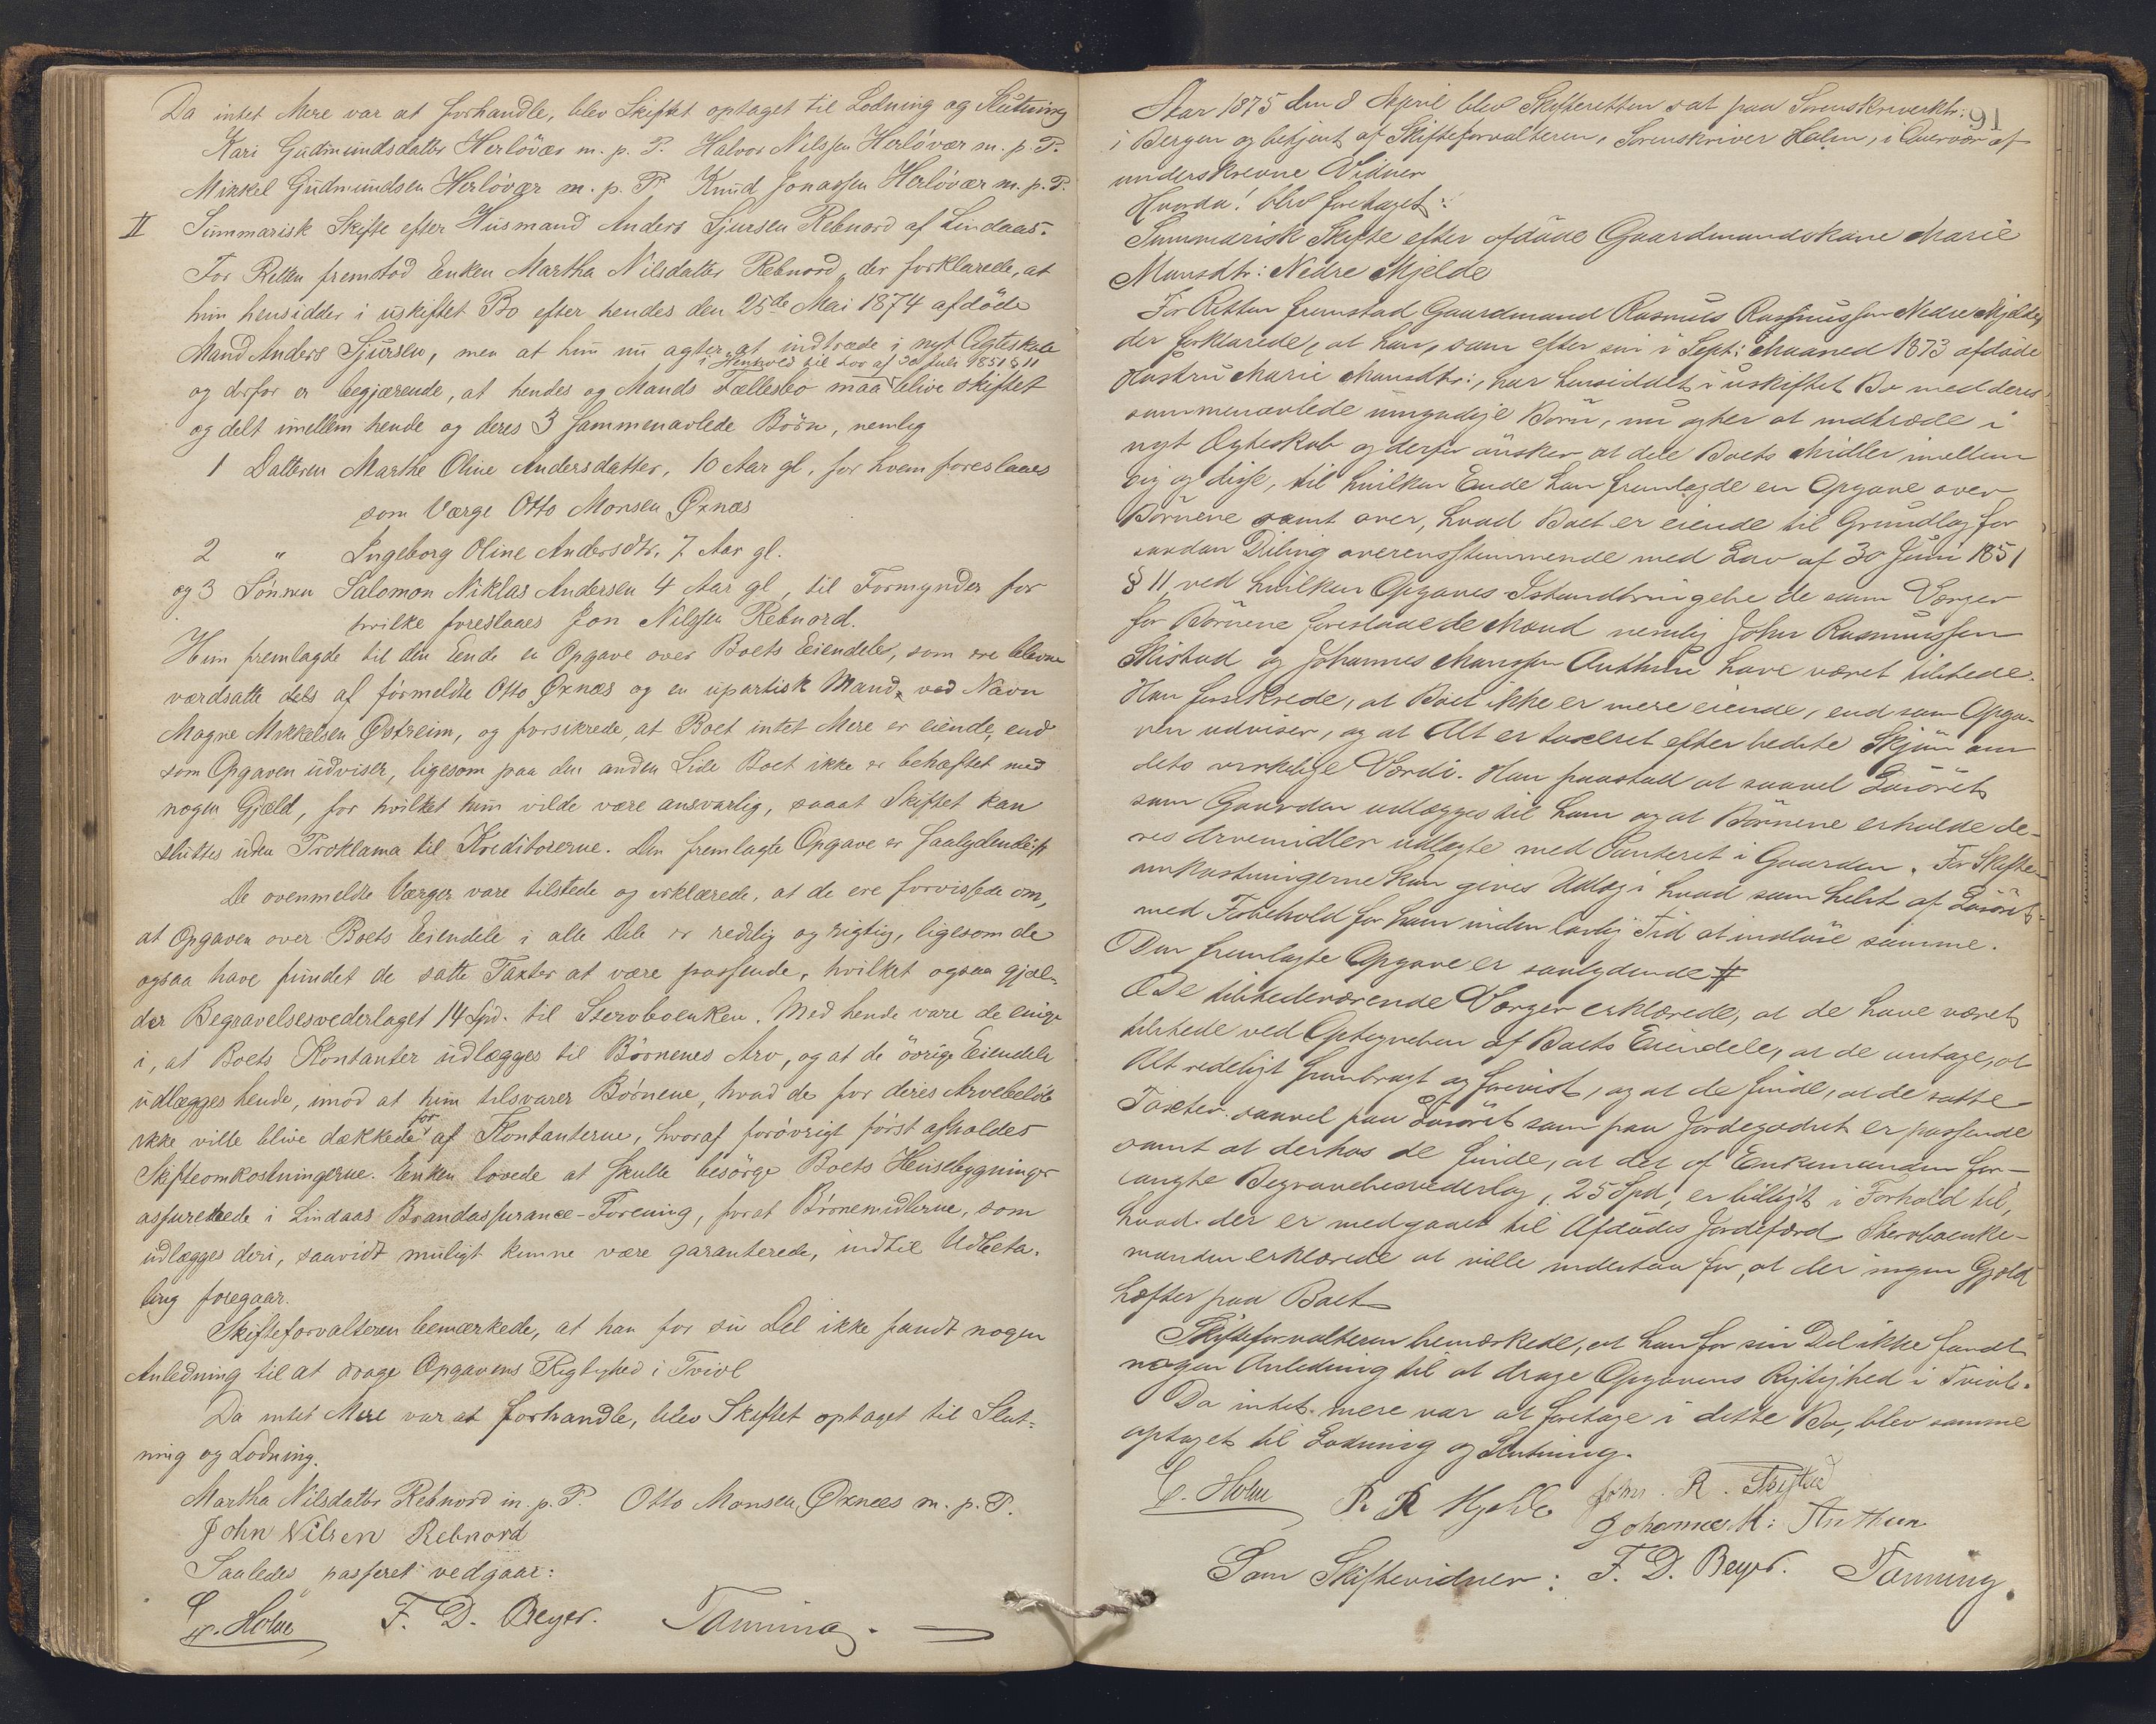 Da intet Mere var at forhandle, blev Skiftet optaget til Lodning og Slutning
Kari Gudmundsdatter Herlövær m. p. P. Halvor Nilssen Herlövær m. p. P.
Mikkel Gudmundsen Herlövær m. p. P. Knud Jonassen Herlövær m. p. P.
II Summarisk Skifte efter Husmand Anders Sjursen Rebnord af Lindaas.
For Retten fremstod Enken Martha Nilsdatter Rebnord, der forklarede, at
hun hensidder i uskiftet Bo efter hendes den 25de Mai 1874 afdöde
Mand Anders Sjursen, men at hun nu agter at indtræde i nyt Ægteskab
i Henhold til Lov af 30 Juli 1851 § 11
og derfor er begjærende, at hendes og Mands Fællesbo maa blive skiftet
og delt imellem hende og deres 3 sammenavlede Börn, nemlig
1 Datteren Marthe Oline Andersdatter, 10 Aar gl, for hvem foreslaaes
som Værge Otto Monsen Øxnæs
2 " Ingeborg Oline Andersdtr, 7 Aar gl.
og 3 Sönnen Salomon Niklas Andersen 4 Aar gl, til Formynder for
hvilke foreslaaes Jon Nilssen Rebnord.
Hun fremlagde til den Ende en Opgave over Boets Eiendele, som ere blevne
værdsatte dels af förmeldte Otto Øxnæs og en upartisk Mand, ved Navn
Magne Mikkelsen Østreim, og forsikrede, at Boet intet Mere er eiende, end
som Opgaven udviser, ligesom paa den anden Side Boet ikke er behæftet med
nogen Gjæld, for hvilket hun vilde være ansvarlig, saaat Skiftet kan
sluttes uden Proklama til Kreditorerne. Den fremlagte Opgave er saalydende
De ovenmeldte Værger vare tilstede og erklærede, at de ere forvissede om,
at Opgaven over Boets Eiendele i alle Dele er redelig og rigtig, ligesom de
ogsaa have fundet de satte Taxter at være passende, hvilket ogsaa gjæl-
der Begravelsesvederlaget 14 Spd. til Stervboenken. Med hende vare de enige
i, at Boets Kontanter udlægges til Börnenes Arv, og at de övrige Eiendele
udlægges hende, imod at hun tilsvarer Börnene, hvad de for deres Arvebelöb
for
ikke ville blive dækkede af Kontanterne, hvoraf forövrigt först afholdes
Skifteomkostningerne. Enken lovede at skulle besörge Boets Husebygninger
assurerede i Lindaas Brandassurance-Forening, forat Börnemidlerne, som
udlægges deri, saavidt muligt kunne være garanterede, indtil Udbeta-
ling foregaar.
Skifteforvalteren bemærkede, at han for sin Del ikke fandt nogen
Anledning til at drage Opgavens Rigtighed i Tvivl
Da intet Mere var at forhandle, blev Skiftet optaget til Slut-
ning og Lodning.
Martha Nilsdatter Rebnord m. p. P. Otto Monsen Øxnæs m. p. P.
John Nilsen Rebnord
Saaledes passeret vedgaar:
C. Holm F. D. Beyer. Tönning.
91
Aar 1875 den 8 April blev Skifteretten sat paa Sorenskriverktr:
i Bergen og betjent af Skifteforvalteren, Sorenskriver Holm, i Overvær af
underskrevne Vidner
Hvorda! blev foretaget:
Summarisk Skifte efter afdöde Gaardmandskone Marie
Monsdtr: Nedre Mjelde
For Retten fremstod Gaardmand Rasmus Rasmussen Nedre Mjelde,
der forklarede, at han, som efter sin i Sept: Maaned 1873 afdöde
Hustru Marie Monsdtr:, har hensiddet i uskiftet Bo med deres
sammenavlede umyndige Börn, nu agter at indtræde i
nyt Ægteskab og derfor önsker at dele Boets Midler imellem
sig og disse, til hvilken Ende han fremlagde en Opgave over
Börnene samt over, hvad Boet er eiende til Grundlag for
saadan Deling overensstemmende med Lov af 30 Juni 1851
§ 11, ved hvilken Opgaves Istandbringelse de som Værger
for Börnene foreslaaede Mænd nemlig John Rasmussen
Skistad og Johannes Monssen Anthun have været tilstede.
Han forsikrede, at Boet ikke er mere eiende, end som Opga-
ven udviser, og at Alt er taxeret efter bedste Skjön om
dets virkelige Værdi. Han paastod at saavel Lösöret
som Gaarden udlægges til ham og at Börnene erholde de-
res Arvemidler udlagte med Panteret i Gaarden. For Skifte-
omkostningerne kan gives Udlæg i hvad som helst af Lösöret
med Forbehold for ham inden lovlig Tid at indlöse samme.
Den fremlagte Opgave er saalydende #
De tilstedeværende Værger erklærede, at de have været
tilstede ved Optegnelsen af Boets Eiendele, at de antage, at
Alt redeligt frembragt og forevist, og at de finde, at de satte
Taxter saavel paa Lösöret som paa Jordegodset er passende
samt at derhos de finde, at det af Enkemanden for-
langte Begravelsesvederlag, 25 Spd, er billigt i Forhold til,
hvad der er medgaaet til Afdödes Jordefærd. Stervboenke-
manden erklærede at ville indestaa for, at der ingen Gjæld
hæfter paa Boet
Skifteforvalteren bemærkede, at han for sin Del ikke fandt
nogen Anledning til at drage Opgavens Rigtighed i Tvivl.
Da intet mere var at foretage i dette Bo, blev samme
optaget til Lodning og Slutning.
C. Holm R. R. Mjelde John. R. Skistad
Johannes M: Anthun
Som Skiftevidner: F. D. Beyer. Tönning.